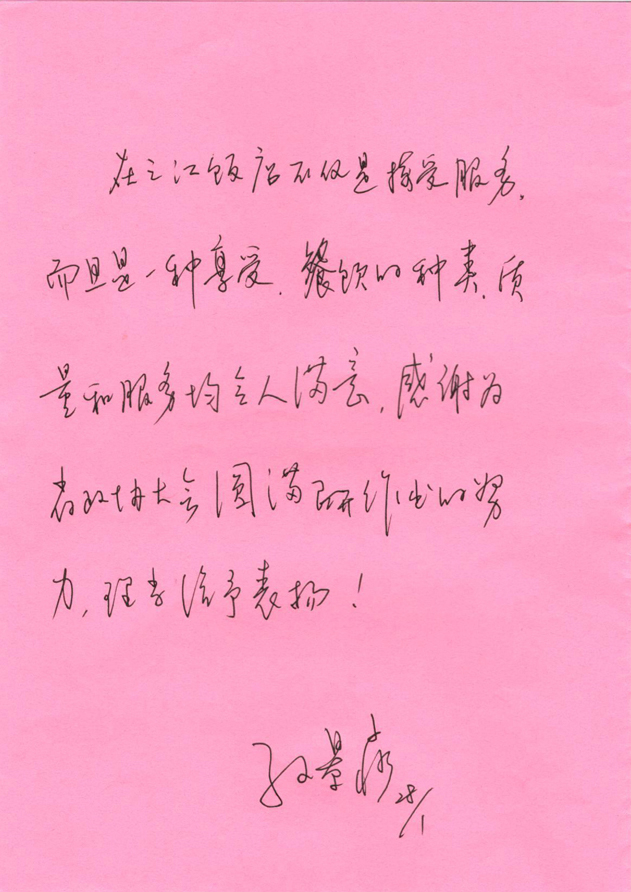 在之江饭店不仅是接受服务,
而且是一种享受.餐饮的种类.质
量和服务均令人满意,感谢为
省政协大会圆满召开作出的努
力,理当给予表扬!
孙景
28/1